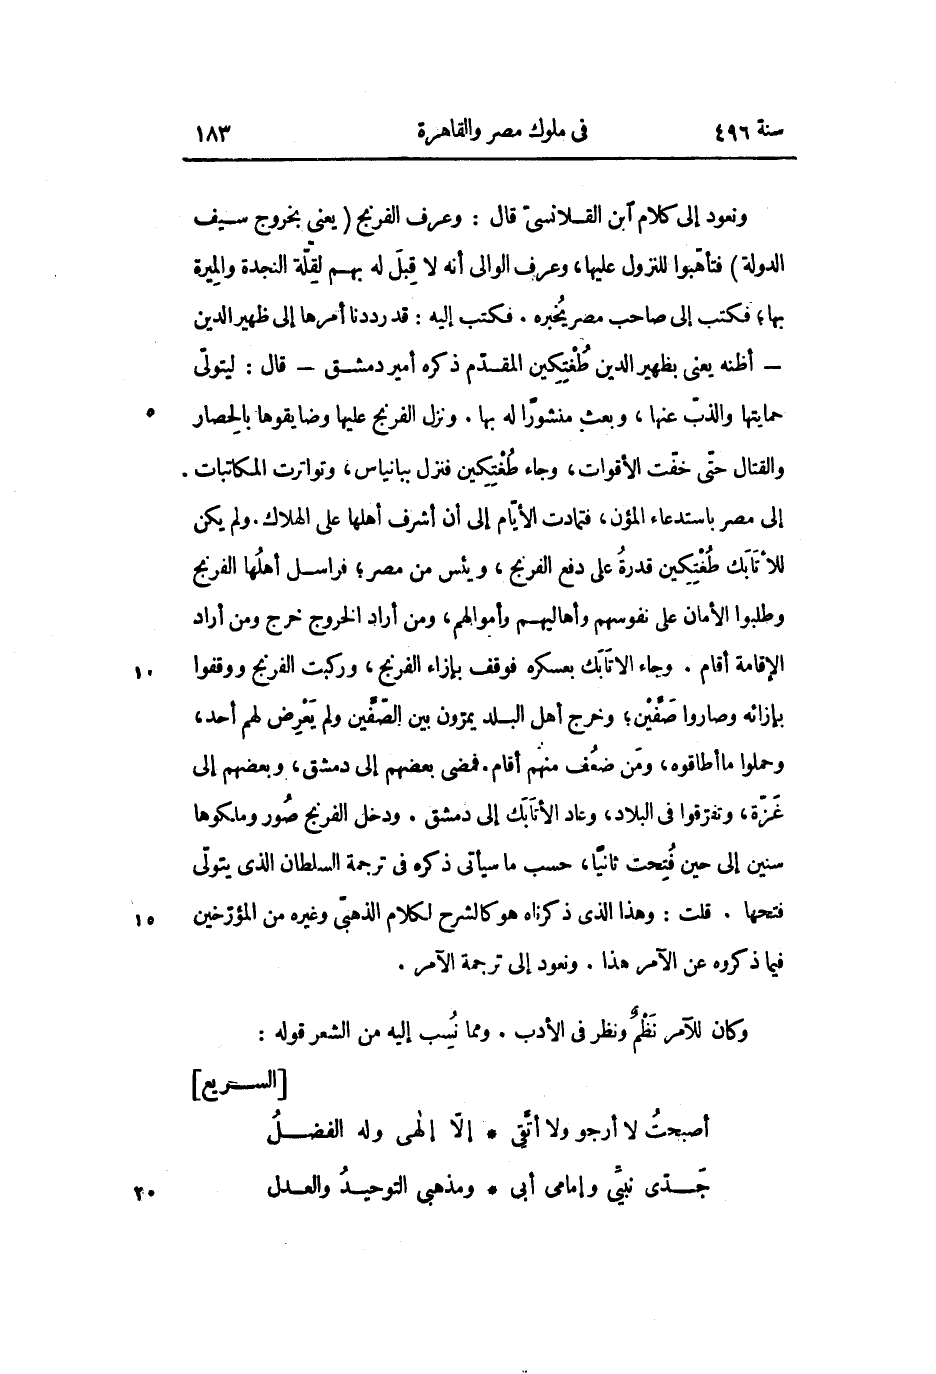 سنة ٤٩٦ فى ملوك مصر والقاهرة ١٨٣
ونعود إلى كلام آبن القلانسىّ قال : وعرف الفرنج ( يعنى بخروج سيف
الدولة ) فتأهّبوا للنزول عليها، وعرف الوالى أنه لا قِبَلَ له بهم لقلّة النجدة والمِيرة
بها؛ فكتب إلى صاحب مصر يُخبره . فكتب إليه : قد رددنا أمرها إلى ظهير الدين
— أظنه يعنى بظهير الدين طُغْتِكِين المقدّم ذكره أمير دمشق — قال : ليتولّى
حمايتها والذبّ عنها ، وبعث منشورًا له بها . ونزل الفرنج عليها وضايقوها بالحصار ٥
والقتال حتّى خفّت الأقوات، وجاء طُغْتِكِين فنزل ببانياس، وتواترت المكاتبات .
إلى مصر باستدعاء المؤن، فتمادت الأيّام إلى أن أشرف أهلها على الهلاك. ولم يكن
للأتَابَك طُغْتِكِين قدرةُ على دفع الفرنج ، ويئس من مصر؛ فراسل أهلُها الفرنج
وطلبوا الأمان على نفوسهم وأهاليهم وأموالهم، ومن أراد الخروج خرج ومن أراد
الإقامة أقام . وجاء الاتَابَك بعسكره فوقف بإزاء الفرنج ، وركبت الفرنج ووقفوا ١٠
بإزائه وصاروا صَفَّيْن؛ وخرج أهل البلد يمرّون بين الصَّفَّين ولم يَعْرِض لهم أحد،
وحملوا ماأطاقوه، ومَن ضعُف منهم أقام. فمضى بعضهم إلى دمشق، وبعضهم إلى
غَزّة، وتفرّقوا فى البلاد، وعاد الأتَابَك إلى دمشق . ودخل الفرنج صُور وملكوها
سنين إلى حين فُتِحت ثانيًا، حسب ما سيأتى ذكره فى ترجمة السلطان الذى يتولّى
فتحها . قلت : وهذا الذى ذكرناه هو كالشرح لكلام الذهبىّ وغيره من المؤرّخين ١٥
فيما ذكروه عن الآمر هذا . ونعود إلى ترجمة الآمر .
وكان للآمر نَظْمٌ ونظر فى الأدب . ومما نُسِب إليه من الشعر قوله :
[السريع]
أصبحتُ لا أرجو ولا أتَّقِى * إلّا إلٰهى وله الفضلُ
جَدّى نبيٌّ وإمامى أبى * ومذهبى التوحيدُ والعدل ٢٠